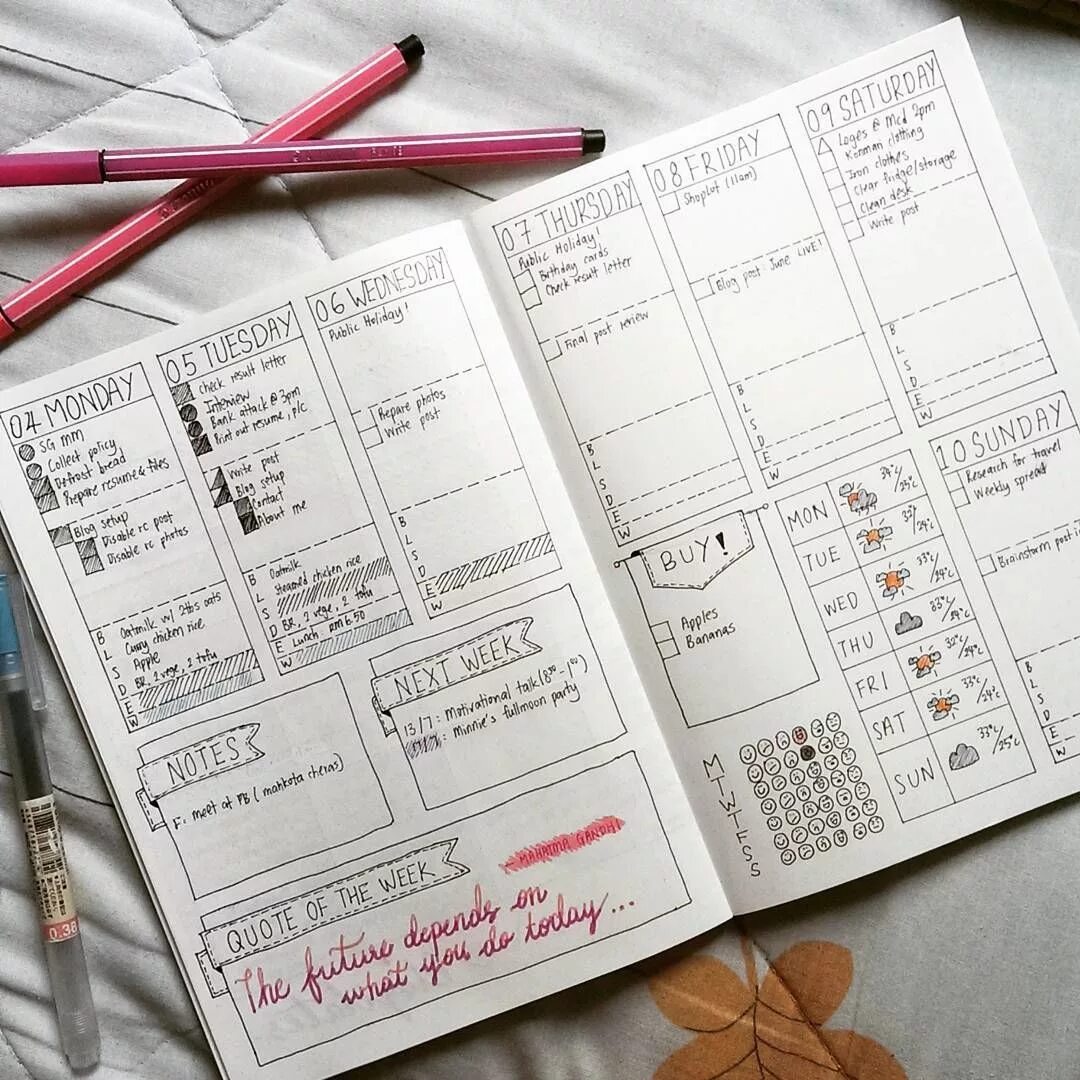 04 MONDAY
SG MM
Collect policy
Defrost bread
Prepare resume & files
Blog setup
Disable rc post
Disable rc photos
B Oatmilk w/ 2tbs oats
L Curry chicken rice
S Apple
D BR, 2 vege, 2 tofu
E
W
05 TUESDAY
Check result letter
Interview
Bank attack @ 3pm
Print out resume, plc
Write post
Blog setup
Contact
About me
B Oatmilk
L Steamed chicken rice
S
D BR, 2 vege, 2 tofu
E Lunch RM6.50
W
06 WEDNESDAY
Public Holiday!
Prepare photos
Write post
B
L
S
D
E
W
NOTES
F: meet at PB (mahkota cheras)
NEXT WEEK
13/7: Motivational talk (8³⁰-1⁰⁰)
: Minnie's fullmoon party
QUOTE OF THE WEEK
MAHATMA GANDHI
The future depends on
what you do today...
07 THURSDAY
Public Holiday!
Birthday cards
Check result letter
Final post review
B
L
S
D
E
W
08 FRIDAY
Shoplot (11am)
Blog post: June LIVE!
B
L
S
D
E
W
09 SATURDAY
Loges @ Mcd 2pm
Konmari clothing
Iron clothes
Clear fridge/storage
Clean desk
Write post
B
L
S
D
E
W
10 SUNDAY
Research for travel
Weekly spread
Brainstorm post
B
L
S
D
E
W
BUY!
Apples
Bananas
MON 34°C/25°C
TUE 33°/24°C
WED 33°C/24°C
THU 33°C/24°C
FRI 32°C/24°C
SAT 33°C/24°C
SUN 33°C/25°C
M
T
W
T
F
S
S
0.38